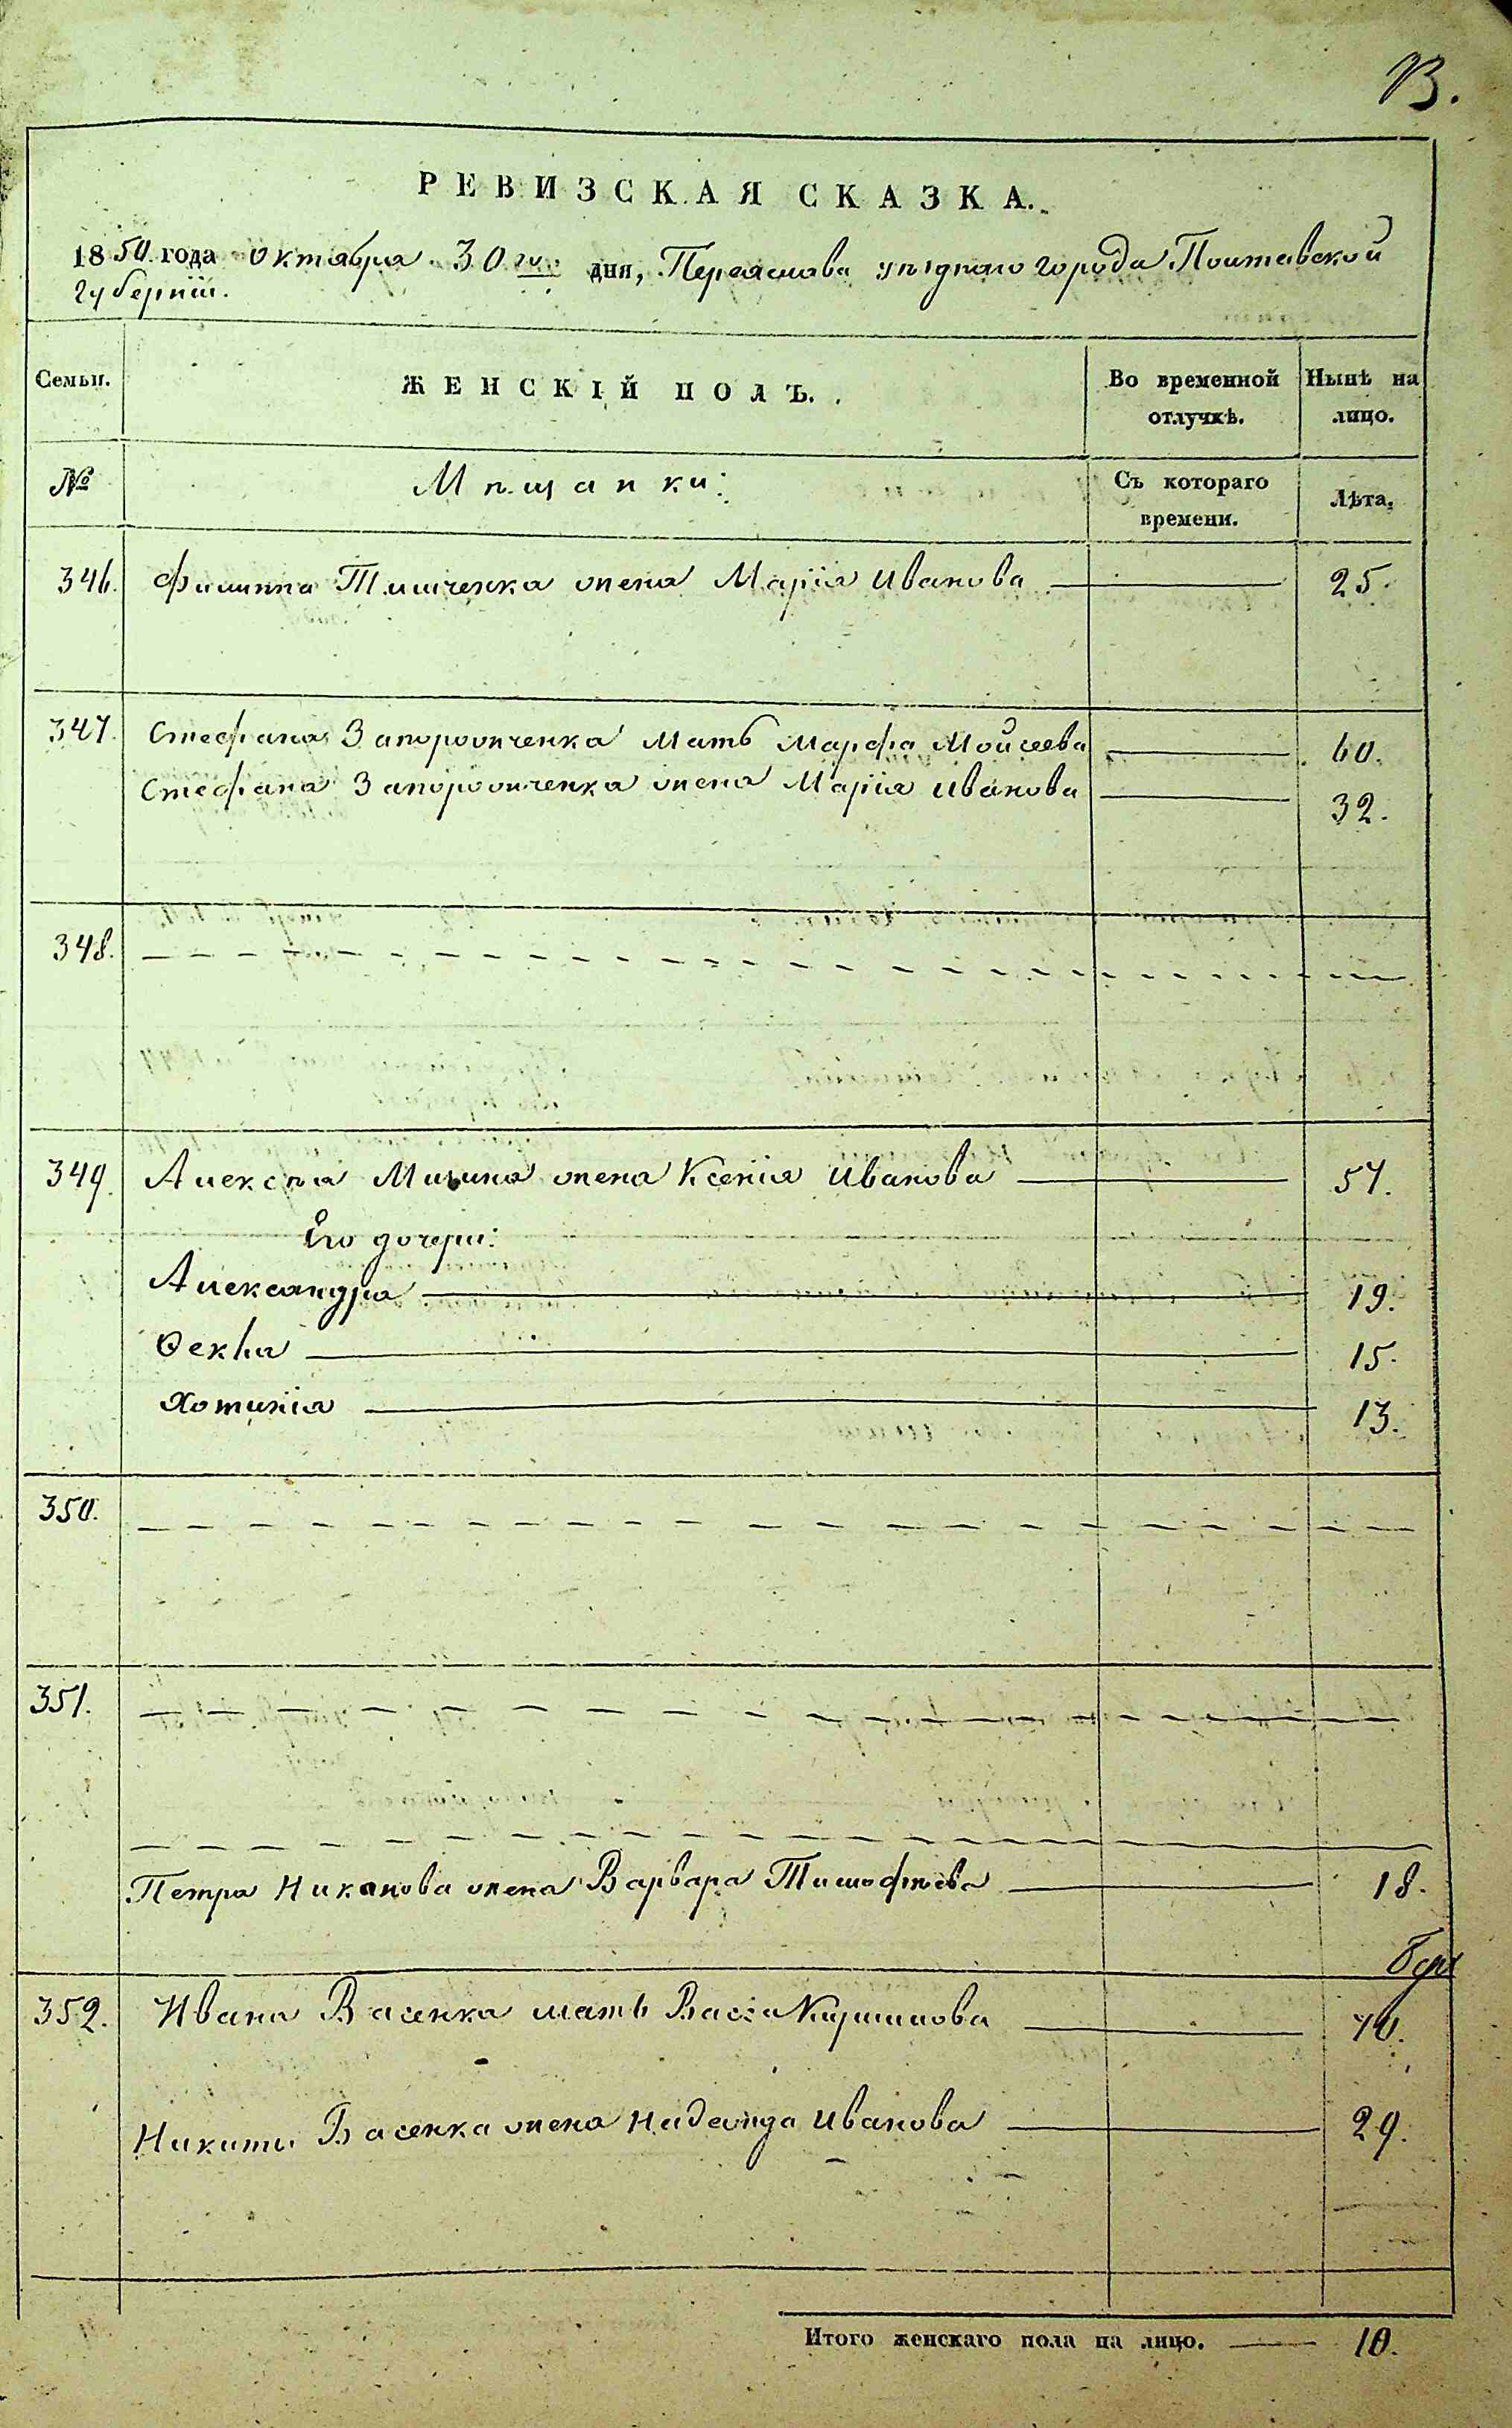 В.
РЕВИЗСКАЯ СКАЗКА.
1850 года Октября 30го дня, Переяслава уѣзднаго города Полтавской
Губерніи.
Семьи.
ЖЕНСКІЙ ПОЛЪ.
Во временной отлучкѣ.
Нынѣ на лицо.
№
Мѣщанки:
Съ котораго времени.
Лѣта.
346. Филиппа Тимченка жена Марія Иванова 25.
347. Стефана Запорожченка мать Марфа Мойсеева 60.
Стефана Запорожченка жена Марія Иванова 32.
348.
349. Алексѣя жена Ксенія Иванова 57.
Его дочери:
Александра 19.
Ѳекла 15.
Хотинія 13.
350.
351.
Петра Никанова жена Варвара Тимофѣева 18.
352. Ивана Васенка мать Васса Кирилова 70.
Никиты Васенка жена Надежда Иванова 29.
Итого женскаго пола на лицо. 10.